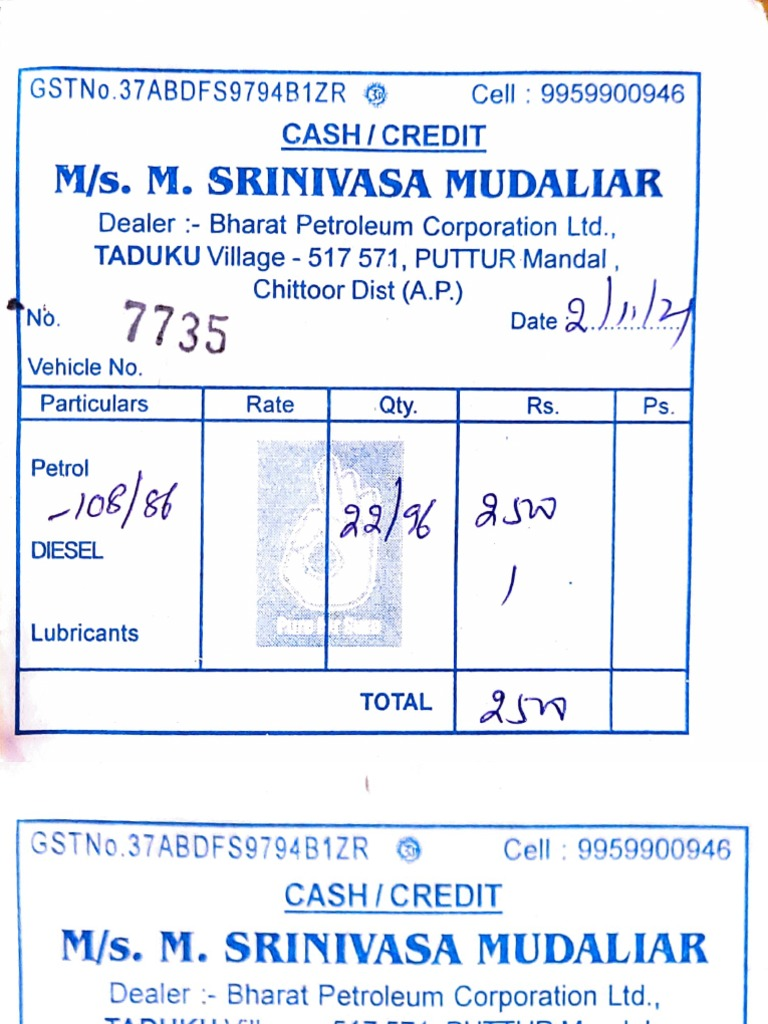 GSTNo.37ABDFS9794B1ZR ॐ Cell : 9959900946
CASH / CREDIT
M/s. M. SRINIVASA MUDALIAR
Dealer :- Bharat Petroleum Corporation Ltd.,
TADUKU Village - 517 571, PUTTUR Mandal ,
Chittoor Dist (A.P.)
No. 7735 Date :2/11/21
Vehicle No.
Particulars Rate Qty. Rs. Ps.
Petrol
-108/86 22/96 2500
DIESEL
Lubricants
TOTAL 2500
GSTNo.37ABDFS9794B1ZR ॐ Cell : 9959900946
CASH / CREDIT
M/s. M. SRINIVASA MUDALIAR
Dealer :- Bharat Petroleum Corporation Ltd.,